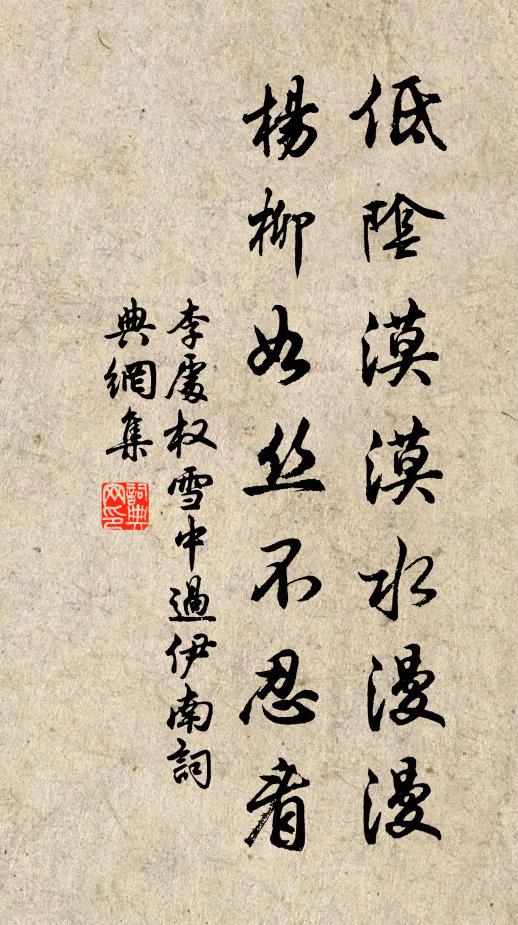 低陰漠漠水漫漫
楊柳如丝不忍看
李處权雪中過伊南詞
典網集
詞典
网印